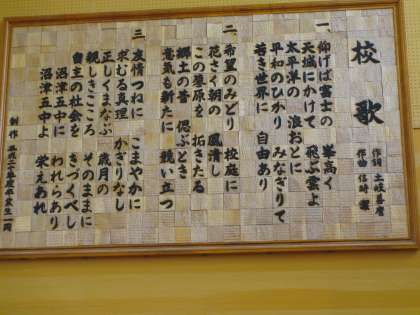 校歌
作詞 土岐善麿
作曲 信時潔
一、仰げば富士の 峯高く
天城にかけて 飛ぶ雲よ
太平洋の 浪おとに
平和のひかり みなぎりて
若き世界に 自由あり
二、希望のみどり 校庭に
花さく朝の 風清し
この草原を 拓きたる
郷土の昔 偲ぶとき
意気も新たに 競い立つ
三、友情つねに こまやかに
求むる真理 かぎりなし
正しくまなぶ 歳月の
親しきこころ そのままに
自主の社会を きづくべし
沼津五中に われらあり
沼津五中よ 栄えあれ
制作 年度卒業生一同